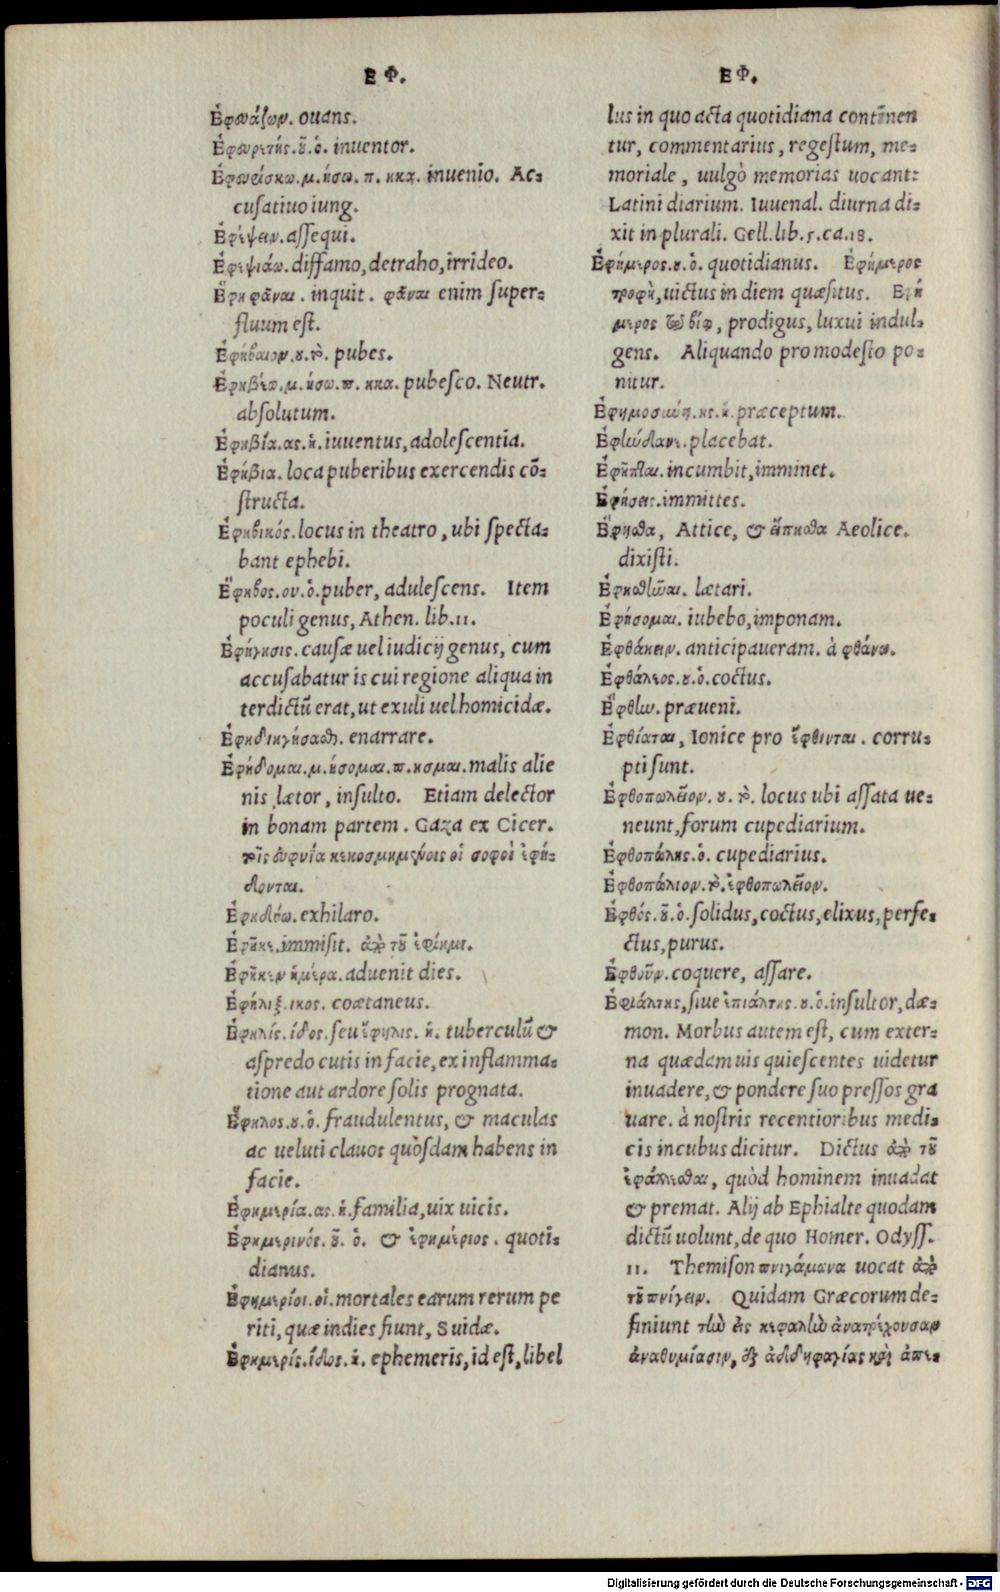 ΕΦ.
Ἐφευάζων. ouans.
Ἐφευρετής. οῦ. ὁ. inuentor.
Ἐφευρίσκω. μ. ήσω. π. ηκα. inuenio. Ac-
cusatiuo iung.
Ἐφέψειν. assequi.
Ἐφεψιάω. diffamo, detraho, irrideo.
Ἔφη φάναι. inquit. φάναι enim super-
fluum est.
Ἐφήβαιον. ου. τὸ. pubes.
Ἐφηβέω. μ. ήσω. π. ηκα. pubesco. Neutr.
absolutum.
Ἐφηβία. ας. ἡ. iuuentus, adolescentia.
Ἐφήβια. loca puberibus exercendis cō-
structa.
Ἐφηβικός. locus in theatro, ubi specta-
bant ephebi.
Ἔφηβος. ου. ὁ. puber, adulescens. Item
poculi genus, Athen. lib. 11.
Ἐφήγησις. causæ uel iudicij genus, cum
accusabatur is cui regione aliqua in
terdictū erat, ut exuli uel homicidæ.
Ἐφηδιηγήσασθαι. enarrare.
Ἐφήδομαι. μ. ήσομαι. π. ησμαι. malis alie
nis lætor, insulto. Etiam delector
in bonam partem. Gaza ex Cicer.
τοῖς εὐφυΐα κεκοσμημένοις οἱ σοφοὶ ἐφή-
δονται.
Ἐφηδύω. exhilaro.
Ἐφῆκε. immisit. ἀπὸ τοῦ ἐφίημι.
Ἐφῆκεν ἡμέρα. aduenit dies.
Ἐφήλιξ. ικος. coætaneus.
Ἐφηλίς. ίδος. seu ἔφηλις. ἡ. tuberculū &
aspredo cutis in facie, ex inflamma-
tione aut ardore solis prognata.
Ἔφηλος. ου. ὁ. fraudulentus, & maculas
ac ueluti clauos quòsdam habens in
facie.
Ἐφημερία. ας. ἡ. familia, uix uicis.
Ἐφημερινός. οῦ. ὁ. & ἐφημέριος. quoti-
dianus.
Ἐφημερίοι. οἱ. mortales earum rerum pe
riti, quæ indies fiunt, Suidæ.
Ἐφημερίς. ίδος. ἡ. ephemeris, id est, libel
ΕΦ.
lus in quo acta quotidiana continen
tur, commentarius, regestum, me-
moriale, uulgò memorias uocant:
Latini diarium. Iuuenal. diurna di-
xit in plurali. Gell. lib. 5. ca. 18.
Ἐφήμερος. ου. ὁ. quotidianus. Ἐφήμερος
τροφὴ, uictus in diem quæsitus. Ἐφή
μερος τῷ βίῳ, prodigus, luxui indul-
gens. Aliquando pro modesto po-
nitur.
Ἐφημοσύνη. ης. ἡ. præceptum.
Ἐφήνδανε. placebat.
Ἐφῆπται. incumbit, imminet.
Ἐφήσεις. immittes.
Ἔφησθα, Attice, & εἴπησθα Aeolice.
dixisti.
Ἐφησθῆναι. lætari.
Ἐφήσομαι. iubebo, imponam.
Ἐφθάκειν. anticipaueram. à φθάνω.
Ἐφθάλεος. ου. ὁ. coctus.
Ἔφθην. præueni.
Ἐφθίαται, Ionice pro ἔφθινται. corru-
pti sunt.
Ἐφθοπωλεῖον. ου. τὸ. locus ubi assata ue-
neunt, forum cupediarium.
Ἐφθοπώλης. ὁ. cupediarius.
Ἐφθοπώλιον. τὸ. ἐφθοπωλεῖον.
Ἐφθός. οῦ. ὁ. solidus, coctus, elixus, perfe-
ctus, purus.
Ἐφθοῦν. coquere, assare.
Ἐφιάλτης, siue ἐπιάλτης. ου. ὁ. insultor, dæ-
mon. Morbus autem est, cum exter-
na quædam uis quiescentes uidetur
inuadere, & pondere suo pressos gra
uare. à nostris recentioribus medi-
cis incubus dicitur. Dictus ἀπὸ τοῦ
ἐφάλλεσθαι, quòd hominem inuadat
& premat. Alij ab Ephialte quodam
dictū uolunt, de quo Homer. Odyss.
11. Themison πνιγάμωνα uocat ἀπὸ
τοῦ πνίγειν. Quidam Græcorum de-
finiunt τὴν εἰς κεφαλὴν ἀνατρέχουσαν
ἀναθυμίασιν, ἐξ ἀδδηφαγίας καὶ ἀπε-
Digitalisierung gefördert durch die Deutsche Forschungsgemeinschaft - DFG